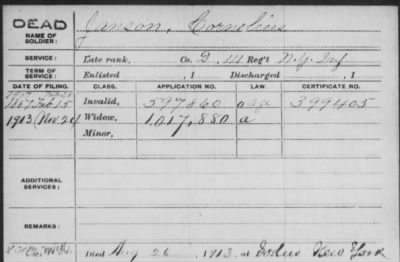 DEAD
NAME OF SOLDIER: Janson, Cornelius
SERVICE: Late rank, Co. D, 111 Reg't N.Y. Inf
TERM OF SERVICE: Enlisted , 1 Discharged , 1
DATE OF FILING. CLASS. APPLICATION NO. LAW. CERTIFICATE NO.
1887 Feb 15 Invalid, 597860 399405
1913 (Nov. 24) Widow, 1,017,880 a
Minor,
ADDITIONAL SERVICES:
REMARKS:
Died Aug 26 1913, at Sodus New York